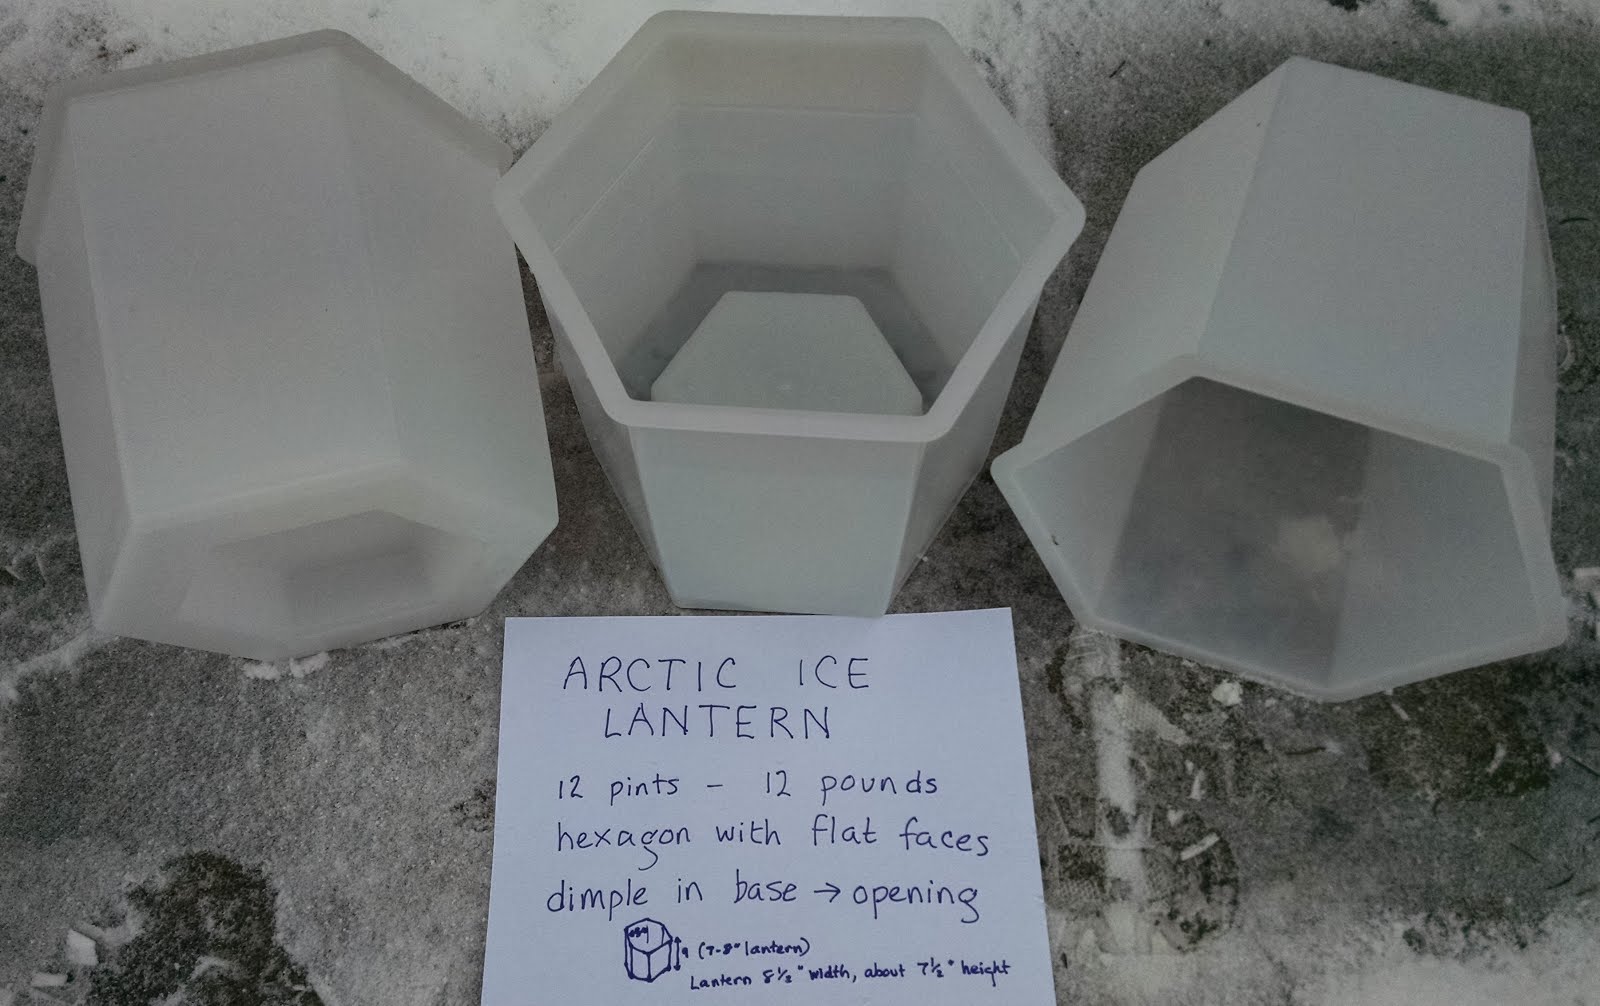 ARCTIC ICE
LANTERN
12 pints - 12 pounds
hexagon with flat faces
dimple in base → opening
9 (7-8" lantern)
Lantern 8½" width, about 7½" height